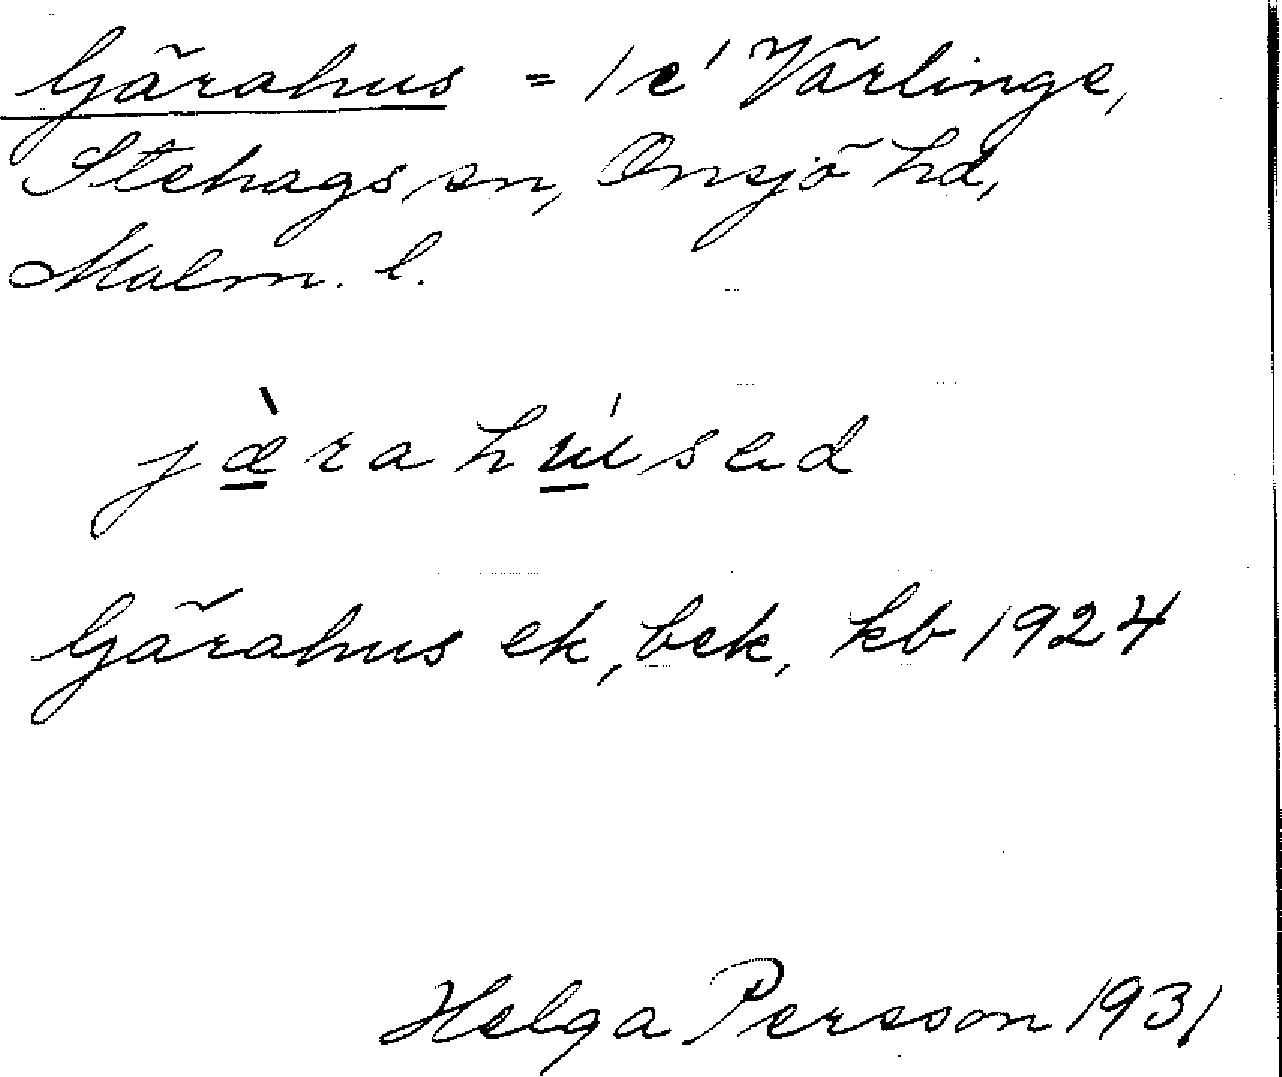 Gärahus = 1c' Värlinge,
Stehags sn, Onsjö hd,
Malm. l.
jæ̀rahúsed
Gärahus ek, bek, kb 1924
Helga Persson 1931